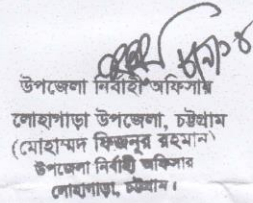 উপজেলা নির্বাহী অফিসার
লোহাগাড়া উপজেলা, চট্টগ্রাম
(মোহাম্মদ ফিজনুর রহমান)
উপজেলা নির্বাহী অফিসার
লোহাগাড়া, চট্টগ্রাম।